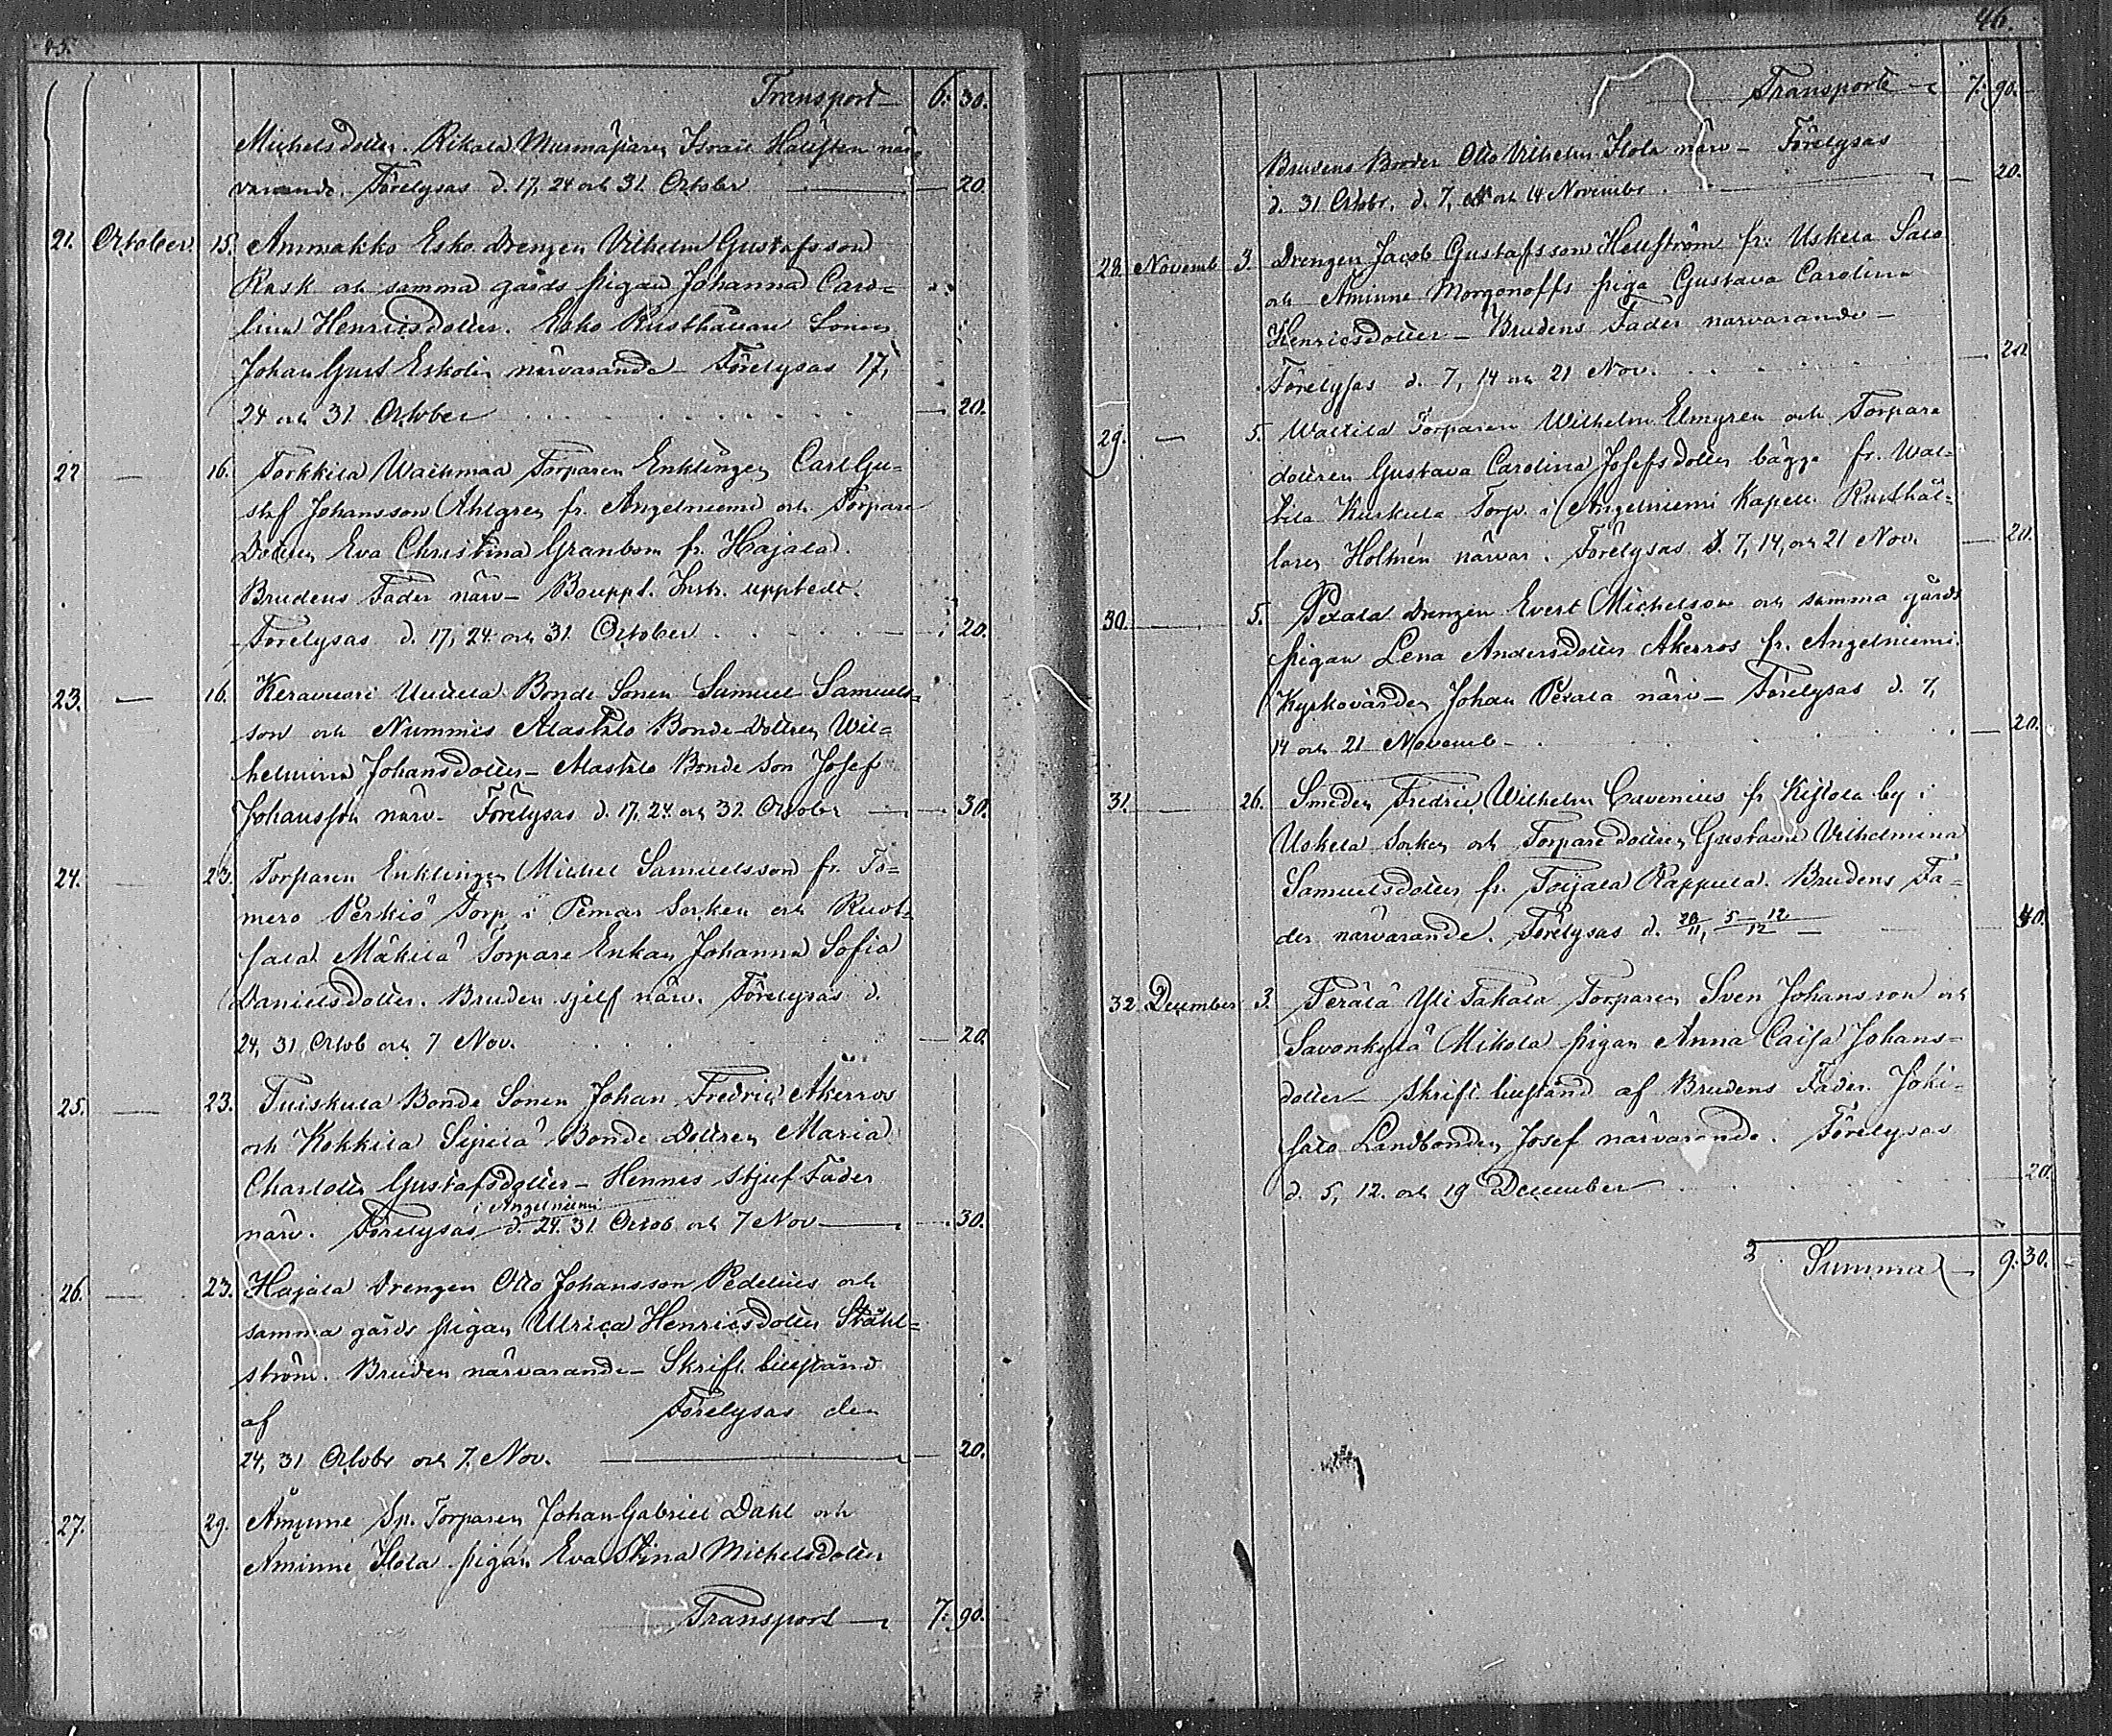 45.
Transport 6. 30.
Michelsdotter. Rikala Israel Hällsten när-
varande. Förelysas d. 17, 24 och 31 October 20.
21. October. 15. Ammakko Esko Drengen Vilhelm Gustafsson
Rask och samma gårds pigan Johanna Caro-
lina Henricsdotter. Esko Rusthållare Sonen
Johan Gust Eskolin närvarande – Förelysas 17,
24 och 31 October 20.
22 – 16. Torkkila Waihmaa Torparen Enklingen Carl Gu-
staf Johansson Ahlgren fr. Angelniemi och Torpare
Dottren Eva Christina Granbom fr. Hajala.
Brudens Fader närv – Bouppt. Instr. upptedt.
Förelysas d. 17, 24 och 31 October 20.
23. – 16. Keravuori Uutela Bonde Sonen Samuel Samuels-
son och Nummis Alastalo Bonde-Dottren Wil-
helmina Johansdotter – Alastalo Bonde Son Josef
Johansson närv – Förelysas d. 17, 24 och 31 October 30.
24. – 23. Torparen Enklingen Michel Samuelsson fr. To-
mero Perkiö Torp i Pemar Socken och Ruot-
sala Mäkilä Torpare Enkan Johanna Sofia
Danielsdotter. Bruden sjelf närv. Förelysas d.
24, 31 Octob och 7 Nov. 20.
25. – 23. Tuiskula Bonde Sonen Johan Fredric Åkerros
och Kokkila Sipilä Bonde Dottren Maria
Charlotta Gustafsdotter – Hennes Stjuf Fader
i Angelniemi
närv. Förelysas d. 24. 31 Octob och 7 Nov 30.
26. – 23. Hajala Drengen Otto Johansson Pedelius och
samma gårds pigan Ulrica Henricsdotter Ståhl-
ström. Bruden närvarande – Skrift. tillstånd
af Förelysas den
24, 31 Octobr och 7. Nov. 20.
27. 29. Åminne Torparen Johan Gabriel Dahl och
Åminne Ilola pigan Eva Stina Michelsdotter
Transport 7. 90.
46.
Transport 7. 90.
Brudens Broder Otto Vilhelm Ilola närv – Förelysas
d. 31 Octobr. d. 7, och 14 Novembr. 20.
28. Novemb 3. Drengen Jacob Gustafsson Hellström fr. Uskela Salo
och Åminne Morgonoffs piga Gustava Carolina
Henricsdotter – Brudens Fader närvarande –
Förelysas d. 7, 14 och 21 Nov. 20.
29. – 5. Waltila Torparen Wilhelm Elmgren och Torpare
dottren Gustava Carolina Josefsdotter bägge fr. Wal-
tila Kurkula Torp i Angelniemi Kapell. Rusthål-
laren Holmén närvar. Förelysas d. 7, 14, och 21 Nov. 20.
30. 5. Pexala Drengen Evert Michelsson och samma gårds
pigan Lena Andersdotter Åkerros fr. Angelniemi.
Kyrkovärden Johan Pexala närv – Förelysas d. 7,
14 och 21 Novemb – 20.
31. 26. Smeden Fredric Wilhelm Cavenius fr Kistola by i
Uskela Socken och Torpare dottren Gustava Vilhelmina
Samuelsdotter fr. Toijala Rappula. Brudens Fa-
der närvarande. Förelysas d. 28/11, 5–12/12 40.
32. December 3. Perälä Yli Takala Torparen Sven Johansson och
Savonkylä Mikola pigan Anna Caisa Johans-
dotter – Skrift. tillstånd af Brudens Fader. Johi-
salo Landbonden Josef närvarande. Förelysas
d. 5, 12. och 19 December 20.
Summa 9. 30.